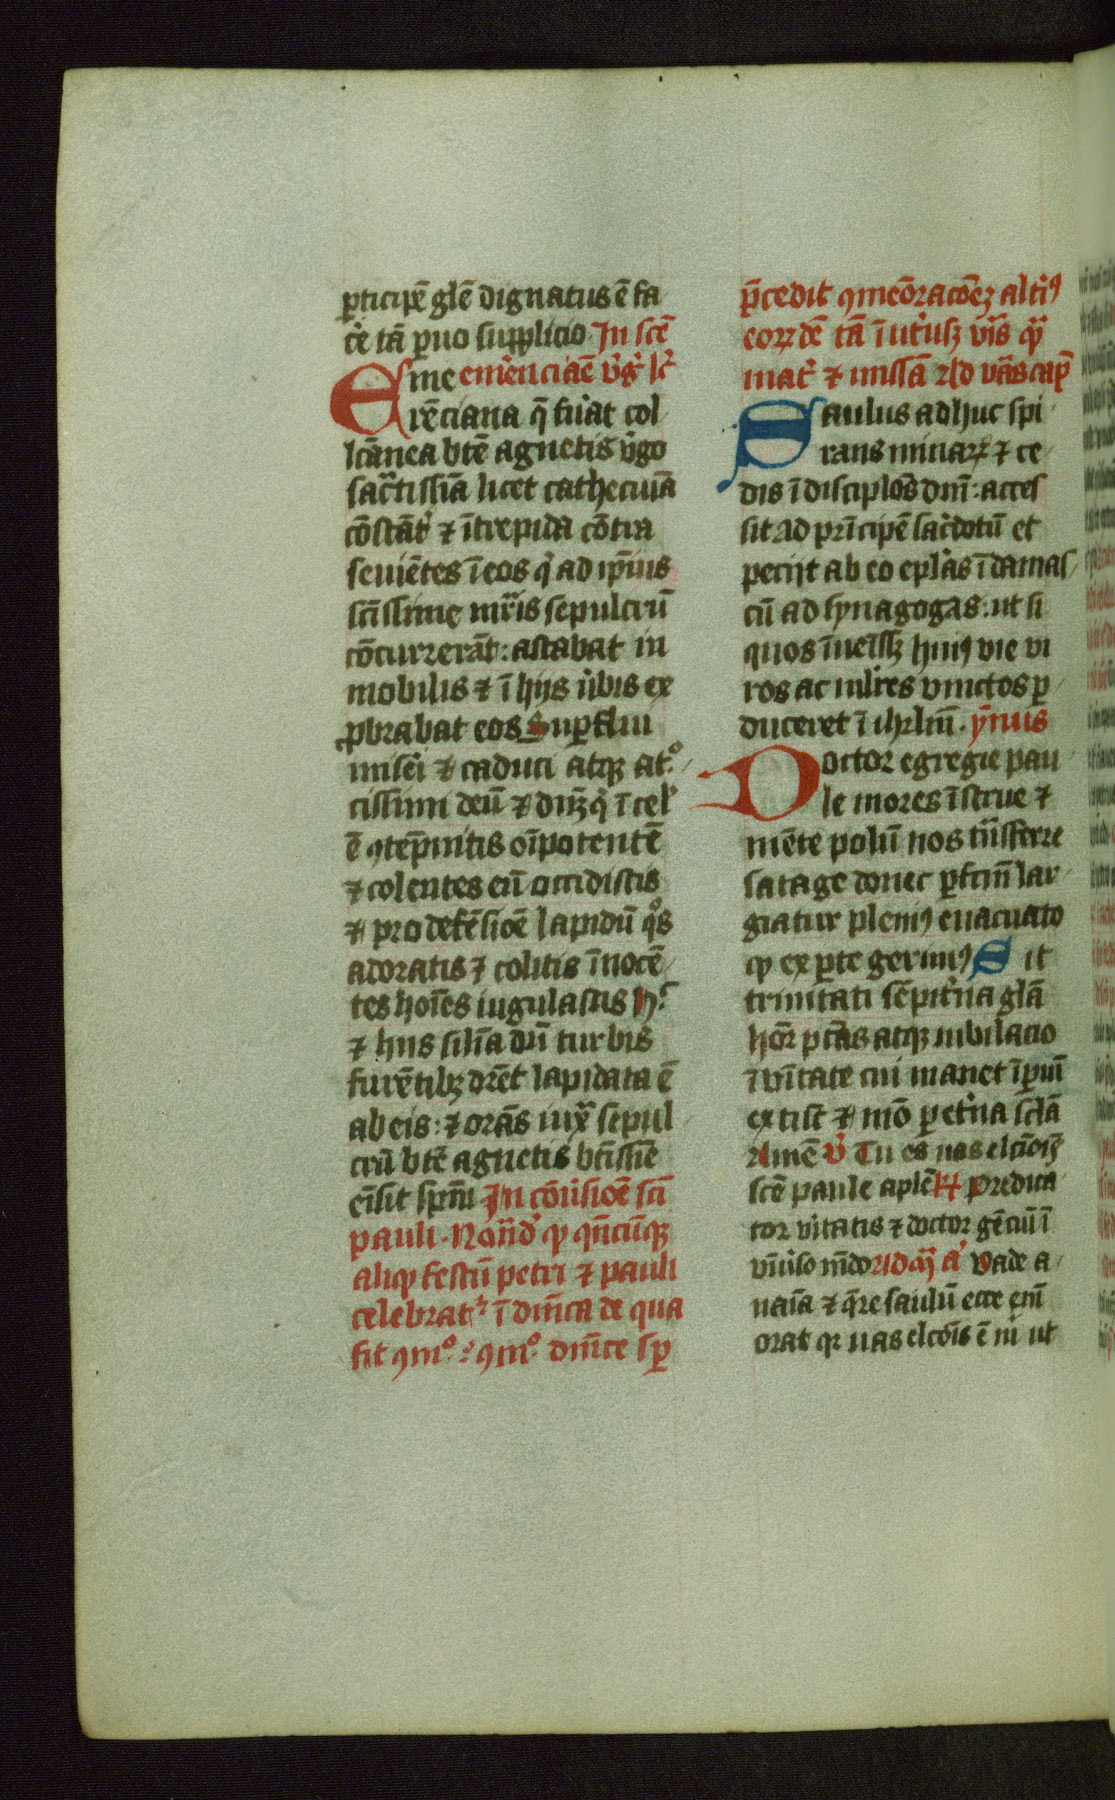 p̱ticipē glē dignatus ē fa
c̉e tā paruo supplicio In sc̄e
Eme em̉enciaē v̉g̉ lc̉
rēciana q̄ fu̇at col
lctānea btē agnetis v̉go
sac̃tissīa licet cathecuīa
cōstāt̉ ⁊ īt̉repida cōtra
seuiētes ī eos q̉ ad ip̄ius
sctīssime mr̄is sepulcrū
cōcurrerāt: astabat in
mobilis ⁊ ī hijs v̉bis ex
ꝓbrabat eos Suꝑflui
miseri ⁊ caduci atqꝫ at̊
cissimi deū ⁊ dn̄ꝫ q̉ ī cel̉
ē ꝯtēpnitis oīpotentē
⁊ colentes eū occidistis
⁊ pro defēsiōe lapidū q̊s
adoratis ⁊ colitis īnocē
tes hoīes iugulastis H̄
⁊ hijs sil̄ia dū turbis
furētibꝫ dr̄et lapidata ē
ab eis: ⁊ orās iuxͣ sepul
crū btē agnetis bt̄issīē
ēīsit spm̄ In cōu̇siōe sc̄i
pauli. Notād̉ ꝙ qn̄cūqꝫ
aliqͩ festū petri ⁊ pauli
celebrat̉ ī dn̄ica de qua
fit ꝯmo꞉ ꝯmo dn̄ice sꝑ
p̄cedit ꝯmeōracōeꝫ alt̉iꝰ
eorꝝdē tā ī vt̉usqꝫ v̄is qͣ
mat̉ ⁊ missā Ad v̄as cap̄
Saulus adhuc spi
rans minarꝝ ⁊ ce
dis ī discipl̄os dn̄i: acces
sit ad prīcipē sac̉dotū et
petijt ab eo epl̄as ī damas
cū ad synagogas: ut si
quos īuēissꝫ huiꝰ vie vi
ros ac mlr̄es vinctos ꝑ
duceret ī ihrl̄m. ȳmus
Doctor egregie pau
le mores īstrue ⁊
mēte polū nos trāsferre
satage donec ꝑfcm̄ lar
giatur pleniꝰ euacuato
ꝙ ex ꝑte gerimꝰ Sit
trinitati sēpit̉na glā
hōr ptās atqꝫ iubilacio
ī vnītate cui manet īꝑiū
ex tūc ⁊ mō ꝑ et̉na sclā
Amē v̉ Tu es vas elcōniꝫ
scē paule aplē R̷ Predica
tor v̉itatis ⁊ doctor gēciū ī
vniu̇so mūdo Ad mͣ a̓ Vade a
nania ⁊ q̄re saulū ecce em̄
orat qꝛ vas elcōis ē m̉ ut